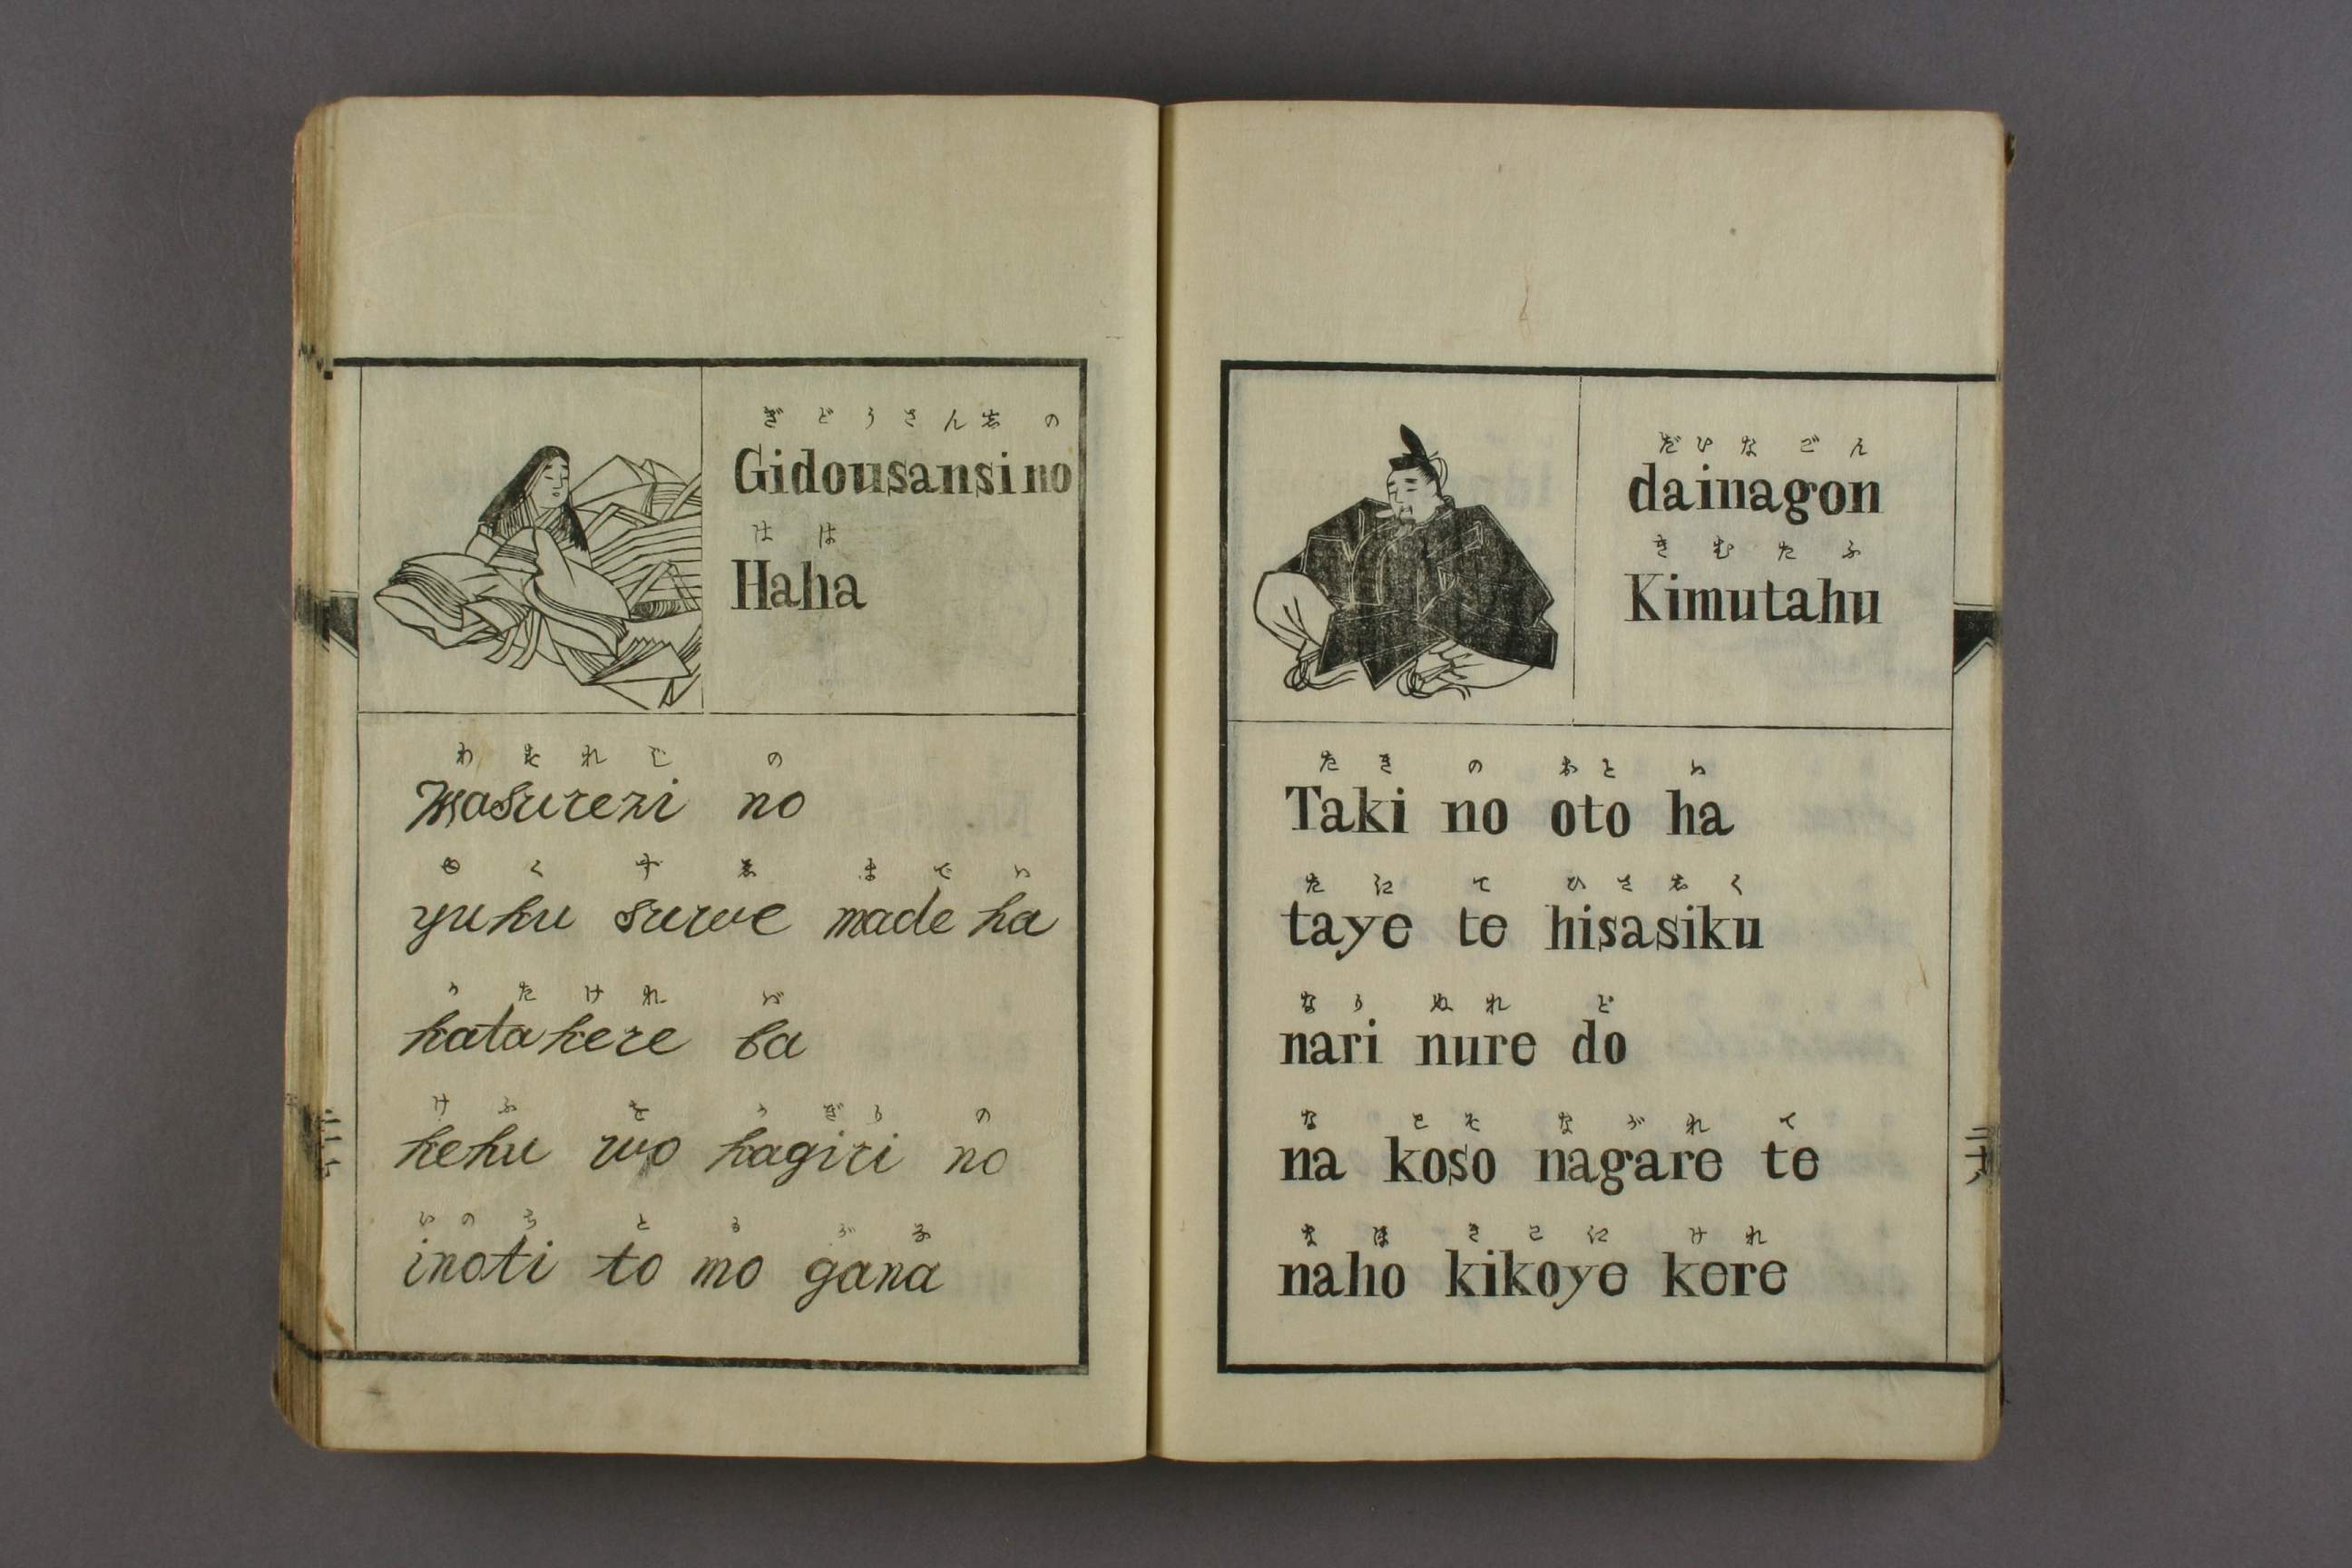 ぎどうさんしの
Gidousansi no
はは
Haha
わすれじの
Wasurezi no
ゆくすゑまでハ
yuku suwe made ha
かたけれバ
katakere ba
けふをかぎりの
kehu wo kagiri no
いのちともがな
inoti to mo gana
だひなごん
dainagon
きむたふ
Kimutahu
たきのおとハ
Taki no oto ha
た江てひさしく
taye te hisasiku
なりぬれど
nari nure do
なこそながれて
na koso nagare te
なほきこ江けれ
naho kikoye kere